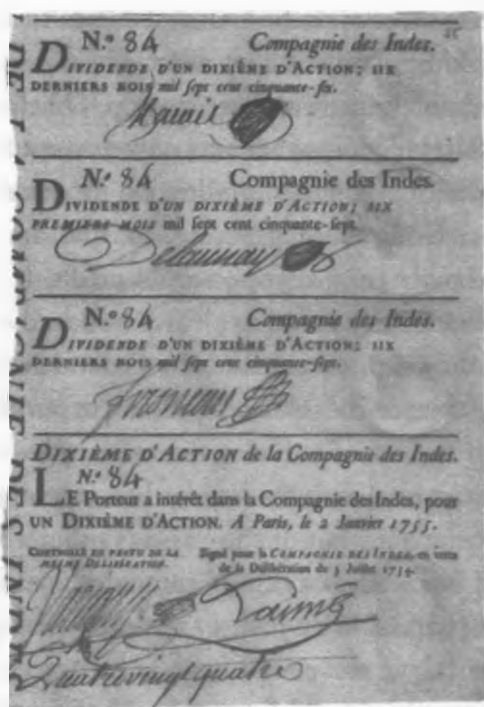 N.º 84 Compagnie des Indes.
DIVIDENDE D'UN DIXIÈME D'ACTION; SIX
DERNIERS MOIS mil sept cent cinquante-six.
N.º 84 Compagnie des Indes.
DIVIDENDE D'UN DIXIÈME D'ACTION; SIX
PREMIERS MOIS mil sept cent cinquante-sept.
Delaunay
N.º 84 Compagnie des Indes.
DIVIDENDE D'UN DIXIÈME D'ACTION; SIX
DERNIERS MOIS mil sept cent cinquante-sept.
DIXIÈME D'ACTION de la Compagnie des Indes.
N.º 84
LE Porteur a intérêt dans la Compagnie des Indes, pour
UN DIXIÈME D'ACTION. A Paris, le 2 Janvier 1755.
CONTROLLÉ EN VERTU DE LA MESME DÉLIBÉRATION.
Signé pour la COMPAGNIE DES INDES, en vertu
de la Délibération de 3 Juillet 1754.
Quatrevingt quatre
DE LA COMPAGNIE DES INDES